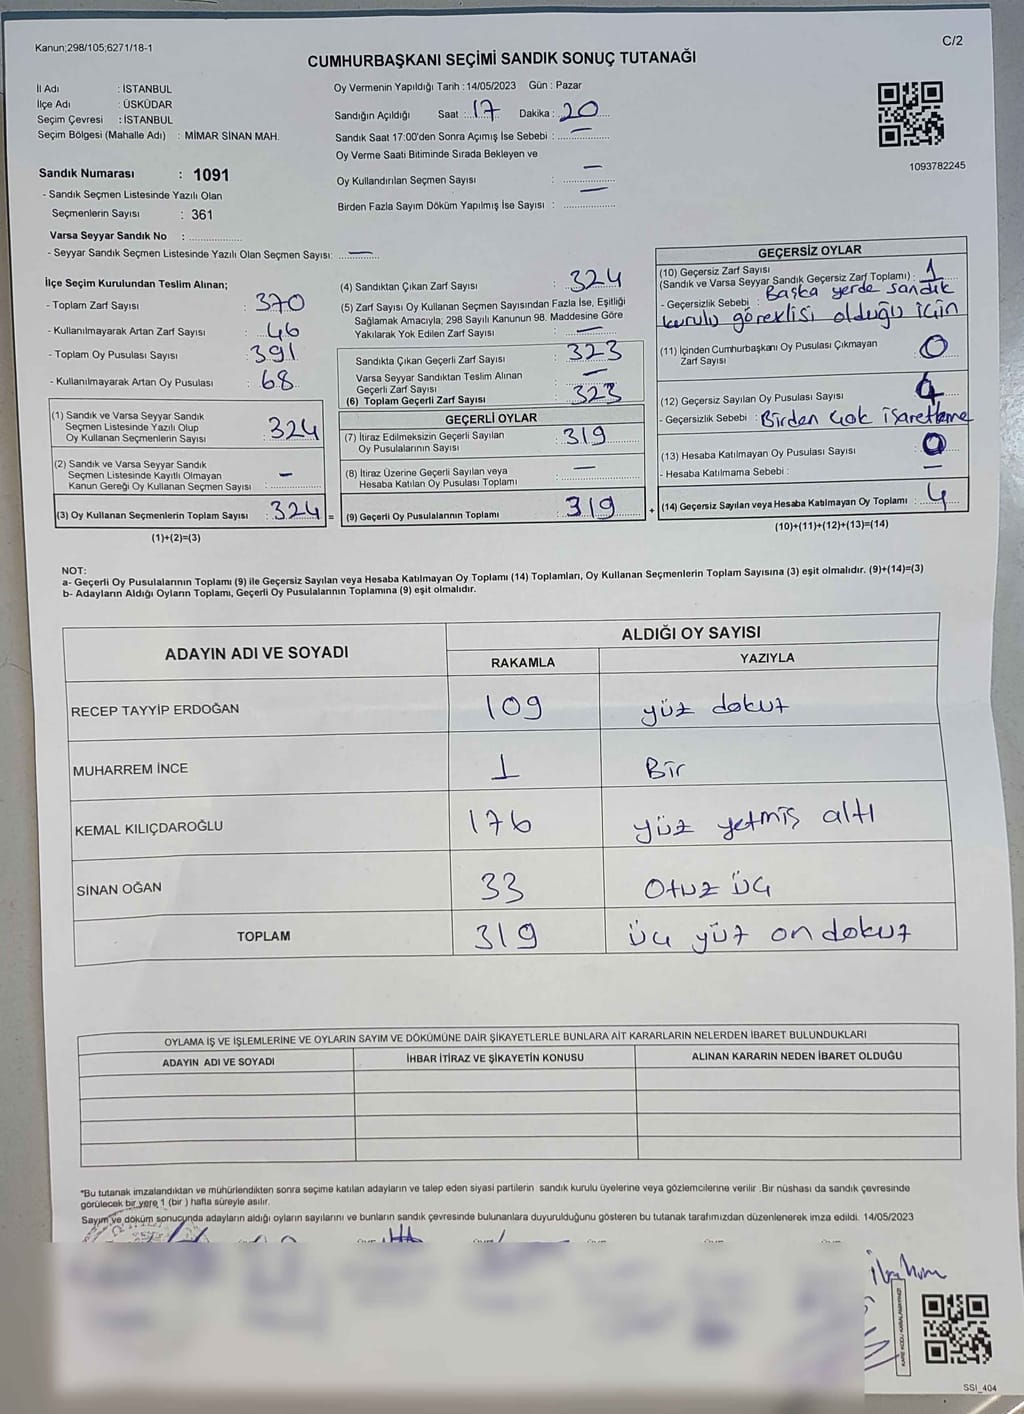 Kanun;298/105;6271/18-1
C/2
CUMHURBAŞKANI SEÇİMİ SANDIK SONUÇ TUTANAĞI
İl Adı : İSTANBUL
İlçe Adı : ÜSKÜDAR
Seçim Çevresi : İSTANBUL
Seçim Bölgesi (Mahalle Adı) : MİMAR SİNAN MAH.
Sandık Numarası : 1091
- Sandık Seçmen Listesinde Yazılı Olan
Seçmenlerin Sayısı : 361
Varsa Seyyar Sandık No :
- Seyyar Sandık Seçmen Listesinde Yazılı Olan Seçmen Sayısı: —
Oy Vermenin Yapıldığı Tarih : 14/05/2023 Gün : Pazar
Sandığın Açıldığı Saat : 17 Dakika : 20
Sandık Saat 17:00'den Sonra Açımış İse Sebebi : —
Oy Verme Saati Bitiminde Sırada Bekleyen ve
Oy Kullandırılan Seçmen Sayısı : —
Birden Fazla Sayım Döküm Yapılmış İse Sayısı : —
1093782245
İlçe Seçim Kurulundan Teslim Alınan;
- Toplam Zarf Sayısı : 370
- Kullanılmayarak Artan Zarf Sayısı : 46
- Toplam Oy Pusulası Sayısı : 391
- Kullanılmayarak Artan Oy Pusulası : 68
(1) Sandık ve Varsa Seyyar Sandık
Seçmen Listesinde Yazılı Olup
Oy Kullanan Seçmenlerin Sayısı : 324
(2) Sandık ve Varsa Seyyar Sandık
Seçmen Listesinde Kayıtlı Olmayan
Kanun Gereği Oy Kullanan Seçmen Sayısı : —
(3) Oy Kullanan Seçmenlerin Toplam Sayısı : 324 =
(1)+(2)=(3)
(4) Sandıktan Çıkan Zarf Sayısı : 324
(5) Zarf Sayısı Oy Kullanan Seçmen Sayısından Fazla İse, Eşitliği
Sağlamak Amacıyla; 298 Sayılı Kanunun 98. Maddesine Göre
Yakılarak Yok Edilen Zarf Sayısı : —
Sandıkta Çıkan Geçerli Zarf Sayısı : 323
Varsa Seyyar Sandıktan Teslim Alınan
Geçerli Zarf Sayısı : —
(6) Toplam Geçerli Zarf Sayısı : 323
GEÇERLİ OYLAR
(7) İtiraz Edilmeksizin Geçerli Sayılan
Oy Pusulalarının Sayısı : 319
(8) İtiraz Üzerine Geçerli Sayılan veya
Hesaba Katılan Oy Pusulası Toplamı : —
(9) Geçerli Oy Pusulalarının Toplamı : 319 +
GEÇERSİZ OYLAR
(10) Geçersiz Zarf Sayısı
(Sandık ve Varsa Seyyar Sandık Geçersiz Zarf Toplamı) : 1
- Geçersizlik Sebebi : Başka yerde sandık
kurulu göreklisi olduğu için
(11) İçinden Cumhurbaşkanı Oy Pusulası Çıkmayan
Zarf Sayısı : 0
(12) Geçersiz Sayılan Oy Pusulası Sayısı : 4
- Geçersizlik Sebebi : Birden çok işaretleme
(13) Hesaba Katılmayan Oy Pusulası Sayısı : 0
- Hesaba Katılmama Sebebi : —
(14) Geçersiz Sayılan veya Hesaba Katılmayan Oy Toplamı : 4
(10)+(11)+(12)+(13)=(14)
NOT:
a- Geçerli Oy Pusulalarının Toplamı (9) ile Geçersiz Sayılan veya Hesaba Katılmayan Oy Toplamı (14) Toplamları, Oy Kullanan Seçmenlerin Toplam Sayısına (3) eşit olmalıdır. (9)+(14)=(3)
b- Adayların Aldığı Oyların Toplamı, Geçerli Oy Pusulalarının Toplamına (9) eşit olmalıdır.
ADAYIN ADI VE SOYADI
ALDIĞI OY SAYISI
RAKAMLA YAZIYLA
RECEP TAYYİP ERDOĞAN 109 yüz dokuz
MUHARREM İNCE 1 Bir
KEMAL KILIÇDAROĞLU 176 yüz yetmiş altı
SİNAN OĞAN 33 Otuz üç
TOPLAM 319 üç yüz on dokuz
OYLAMA İŞ VE İŞLEMLERİNE VE OYLARIN SAYIM VE DÖKÜMÜNE DAİR ŞİKAYETLERLE BUNLARA AİT KARARLARIN NELERDEN İBARET BULUNDUKLARI
ADAYIN ADI VE SOYADI İHBAR İTİRAZ VE ŞİKAYETİN KONUSU ALINAN KARARIN NEDEN İBARET OLDUĞU
*Bu tutanak imzalandıktan ve mühürlendikten sonra seçime katılan adayların ve talep eden siyasi partilerin sandık kurulu üyelerine veya gözlemcilerine verilir .Bir nüshası da sandık çevresinde
görülecek bir yere 1 (bir ) hafta süreyle asılır.
Sayım ve döküm sonucunda adayların aldığı oyların sayılarını ve bunların sandık çevresinde bulunanlara duyurulduğunu gösteren bu tutanak tarafımızdan düzenlenerek imza edildi. 14/05/2023
SSI_404